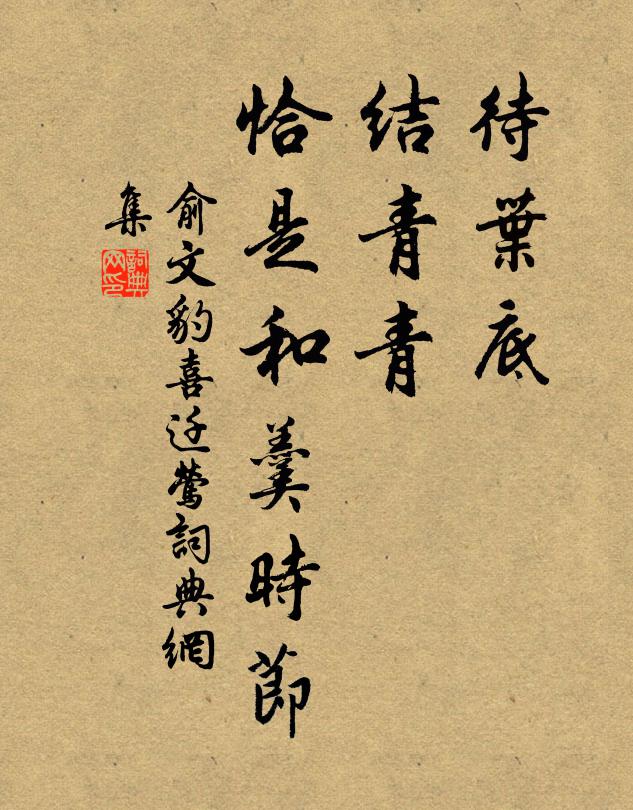 待葉底
結青青
恰是和羹時節
俞文豹喜迁鶯詞典網
集
詞典
网印